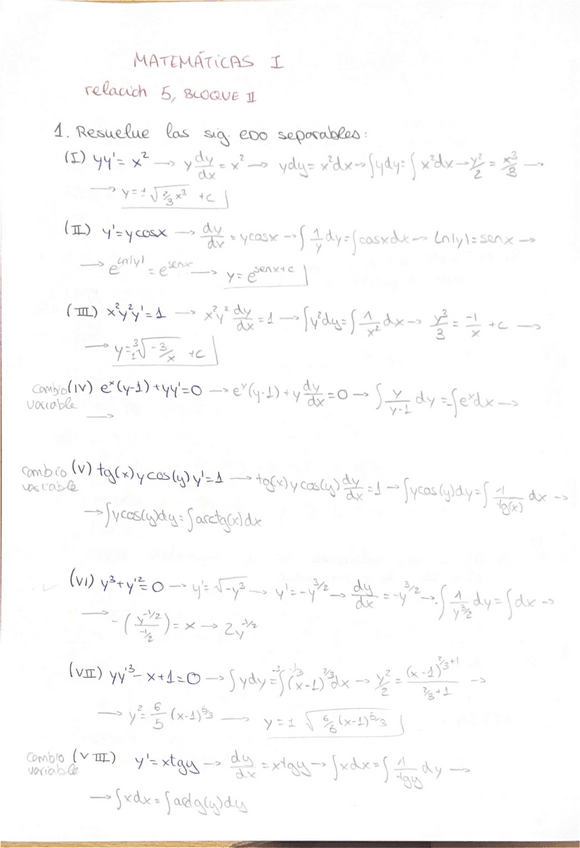 MATEMÁTICAS I
relación 5, BLOQUE II
1. Resuelve las sig. EDO separables:
(I) yy' = x² → y dy/dx = x² → ydy = x²dx → ∫ydy = ∫x²dx → y²/2 = x³/3 →
→ y = ± √(2/3 x³) + c
(II) y' = ycosx → dy/dx = ycosx → ∫ 1/y dy = ∫cosxdx → Ln|y| = senx →
→ e^(Ln|y|) = e^(senx) → y = e^(senx+c)
(III) x²y²y' = 1 → x²y² dy/dx = 1 → ∫y²dy = ∫ 1/x² dx → y³/3 = -1/x + c →
→ y = ³√(-3/x) + c
cambio (IV) eˣ(y-1) + yy' = 0 → eˣ(y-1) + y dy/dx = 0 → ∫ y/(y-1) dy = -∫eˣdx →
variable →
cambio (V) tg(x) y cos(y) y' = 1 → tg(x) y cos(y) dy/dx = 1 → ∫ycos(y)dy = ∫ 1/tg(x) dx →
variable
→ ∫ycos(y)dy = ∫arctg(x)dx
(VI) y³ + y'² = 0 → y' = √-y³ → y' = -y^(3/2) → dy/dx = -y^(3/2) → ∫ 1/y^(3/2) dy = ∫dx →
→ -(y^(-1/2)/(-1/2)) = x → 2y^(-1/2)
(VII) yy'³ - x + 1 = 0 → ∫ydy = ∫(x-1) dx → y²/2 = (x-1)^(2/3+1)/(2/3+1) →
→ y² = 6/5 (x-1)^(5/3) → y = ± √(6/5 (x-1)^(5/3))
cambio (VIII) y' = xtgy → dy/dx = xtgy → ∫xdx = ∫ 1/tgy dy →
variable
→ ∫xdx = ∫arctg(y)dy